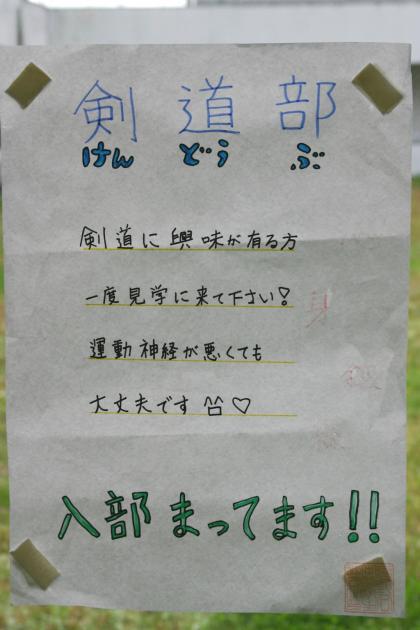 剣道部
けんどうぶ
剣道に興味が有る方
一度見学に来て下さい!
運動神経が悪くても
大丈夫です ^^♡
入部まってます!!